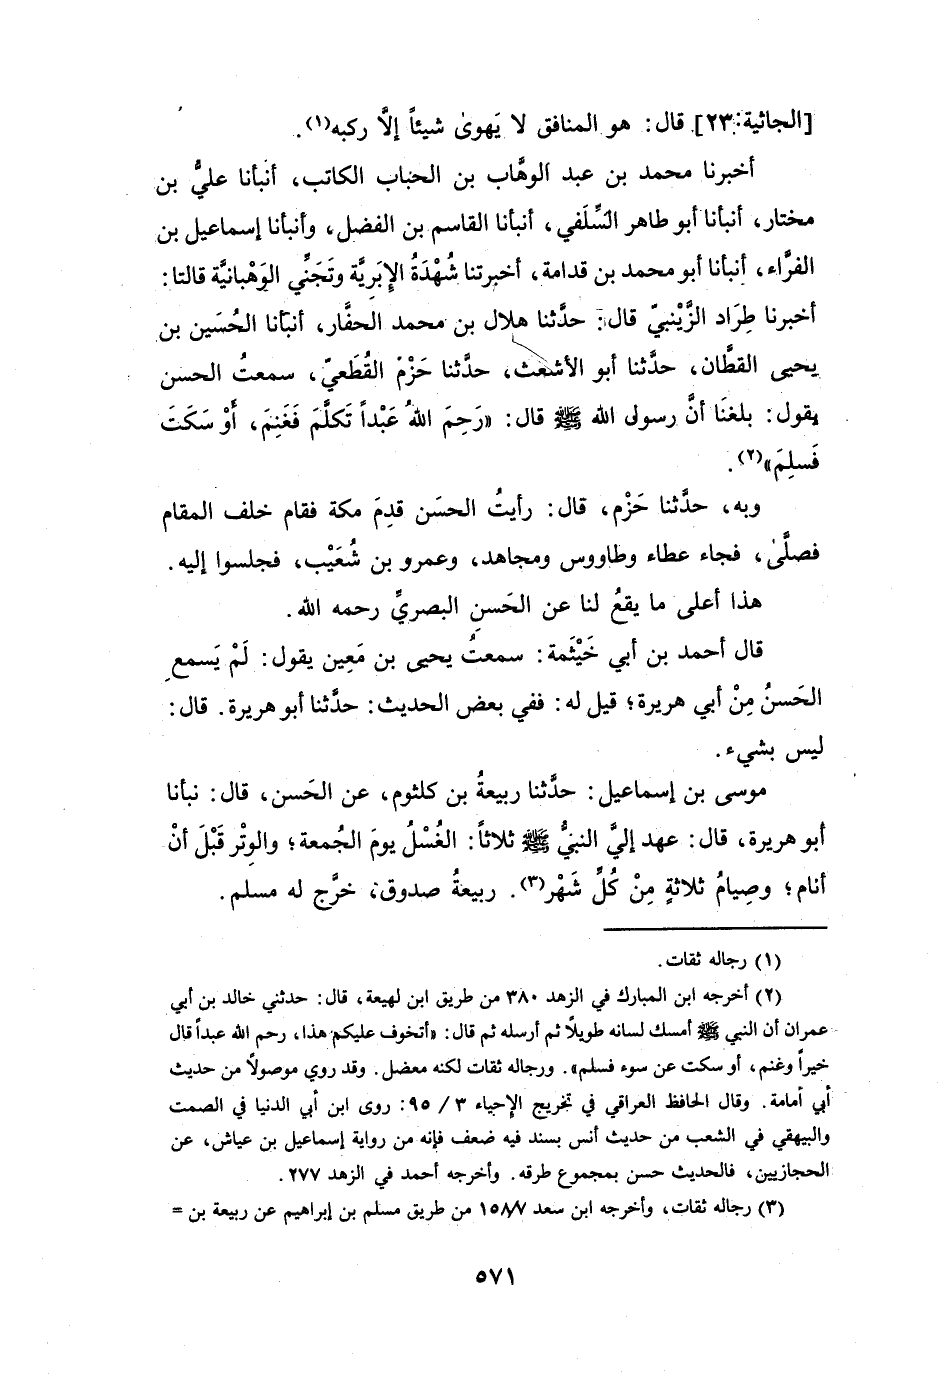 [الجاثية: ٢٣] قال: هو المنافق لا يَهوىٰ شيئاً إلَّا ركبه(١).
أخبرنا محمد بن عبد الوهَّاب بن الحباب الكاتب، أنبأنا عليُّ بن
مختار، أنبأنا أبو طاهر السِّلَفي، أنبأنا القاسم بن الفضل، وأنبأنا إسماعيل بن
الفرَّاء، أنبأنا أبو محمد بن قدامة، أخبرتنا شُهْدَةُ الإبَريَّة وتَجَنِّي الوَهْبانيَّة قالتا:
أخبرنا طِرَاد الزَّيْنبيّ قال: حدَّثنا هلال بن محمد الحفَّار، أنبأنا الحُسَين بن
يحيى القطَّان، حدَّثنا أبو الأشعث، حدَّثنا حَزْمُ القُطَعيّ، سمعتُ الحسن
يقول: بلغنَا أنَّ رسولَ الله ﷺ قال: «رَحِمَ اللهُ عَبْداً تَكلَّمَ فَغَنِمَ، أَوْ سَكَتَ
فَسلِمَ»(٢).
وبه، حدَّثنا حَزْم، قال: رأيتُ الحسَن قدِمَ مكة فقام خلف المقام
فصلَّىٰ، فجاء عطاء وطاووس ومجاهد، وعمرو بن شُعَيْب، فجلسوا إليه.
هذا أعلى ما يقعُ لنا عن الحَسنِ البصريِّ رحمه الله.
قال أحمد بن أبي خَيْثَمة: سمعتُ يحيى بن مَعِين يقول: لَمْ يَسمعِ
الحَسنُ مِنْ أبي هريرة؛ قيل له: ففي بعض الحديث: حدَّثنا أبو هريرة. قال:
ليس بشيء.
موسى بن إسماعيل: حدَّثنا ربيعةُ بن كلثوم، عن الحَسن، قال: نبأنا
أبو هريرة، قال: عهد إليَّ النبيُّ ﷺ ثلاثاً: الغُسْلُ يومَ الجُمعة؛ والوِتْر قَبْلَ أنْ
أنام؛ وصِيامُ ثلاثةٍ مِنْ كُلِّ شَهْر(٣). ربيعةُ صدوق، خرَّج له مسلم.
(١) رجاله ثقات.
(٢) أخرجه ابن المبارك في الزهد ٣٨٠ من طريق ابن لهيعة، قال: حدثني خالد بن أبي
عمران أن النبي ﷺ أمسك لسانه طويلاً ثم أرسله ثم قال: «أتخوف عليكم هذا، رحم الله عبداً قال
خيراً وغنم، أو سكت عن سوء فسلم». ورجاله ثقات لكنه معضل. وقد روي موصولاً من حديث
أبي أمامة. وقال الحافظ العراقي في تخريج الإحياء ٣ / ٩٥: روى ابن أبي الدنيا في الصمت
والبيهقي في الشعب من حديث أنس بسند فيه ضعف فإنه من رواية إسماعيل بن عياش، عن
الحجازيين، فالحديث حسن بمجموع طرقه. وأخرجه أحمد في الزهد ٢٧٧.
(٣) رجاله ثقات، وأخرجه ابن سعد ١٥٨/٧ من طريق مسلم بن إبراهيم عن ربيعة بن =
٥٧١